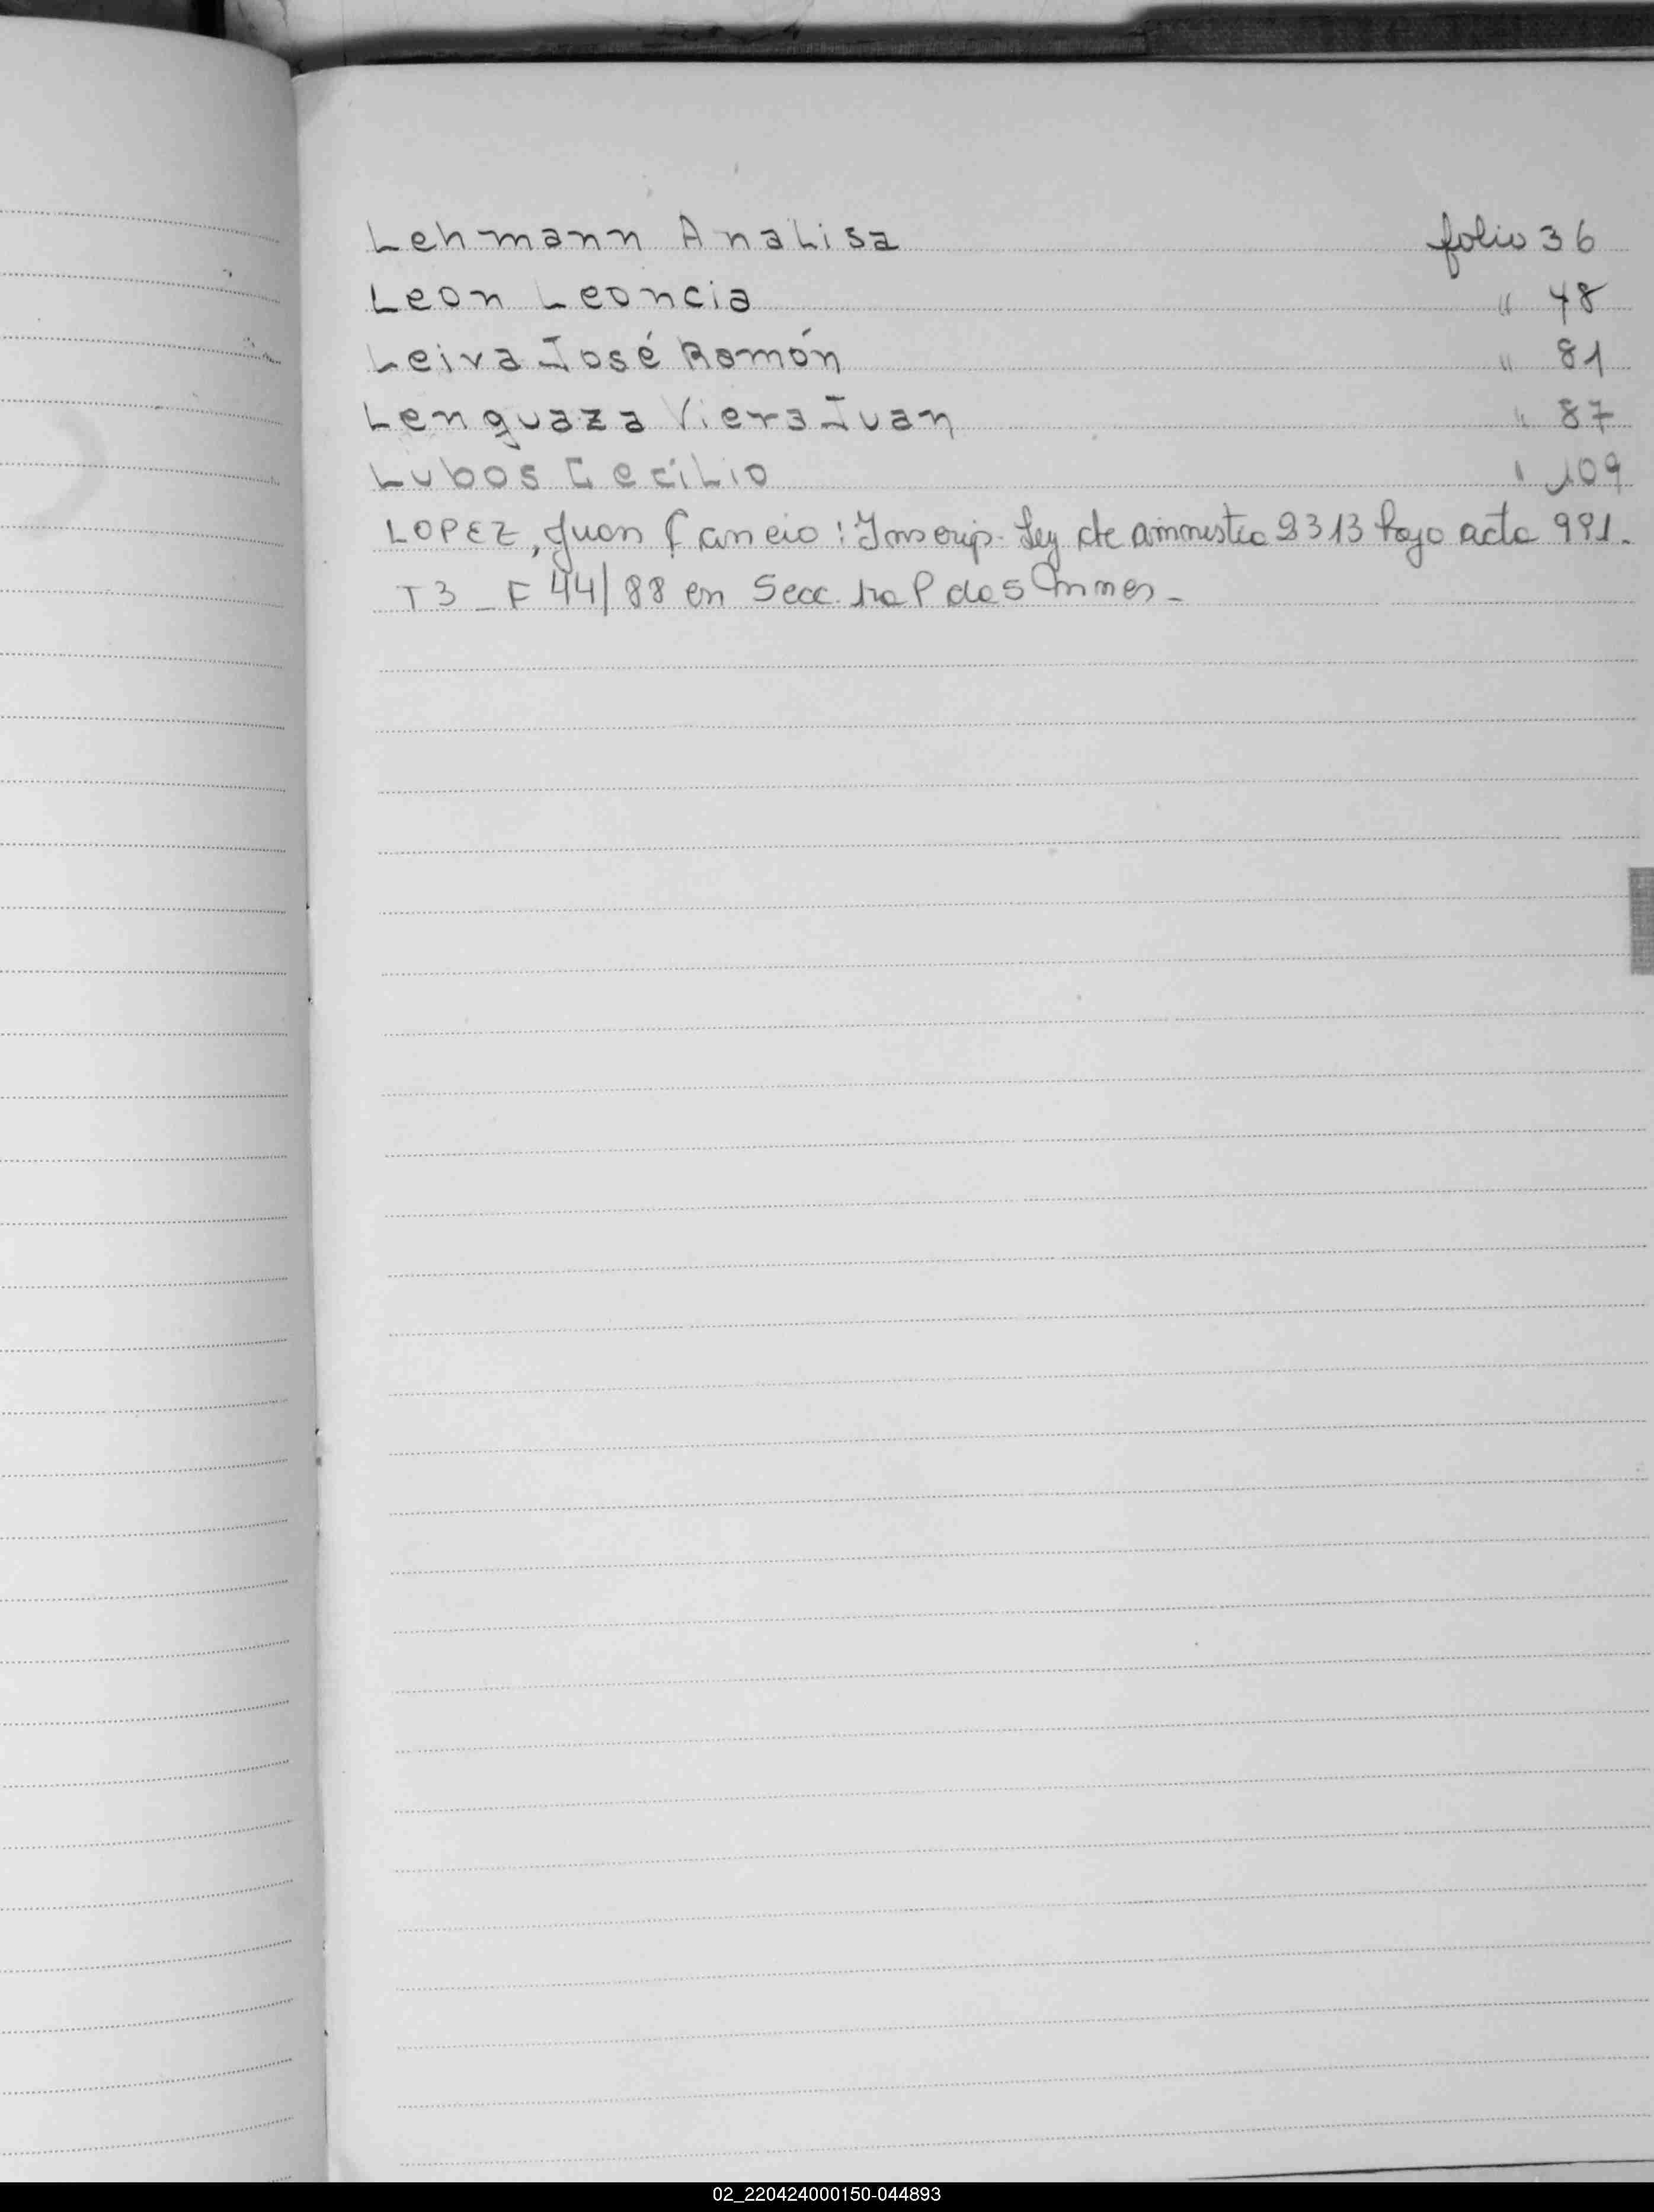 Lehmann Analisa folio 36
Leon Leoncia " 48
Leiva José Ramón " 81
Lenguaza Viera Juan " 87
Lubos Cecilio " 109
LOPEZ, Juan : Inscrip. Ley de amnistia 2313 bajo acta 991.
T3 _ F 44/88 en Secc. 1ra P das
02_220424000150-044893